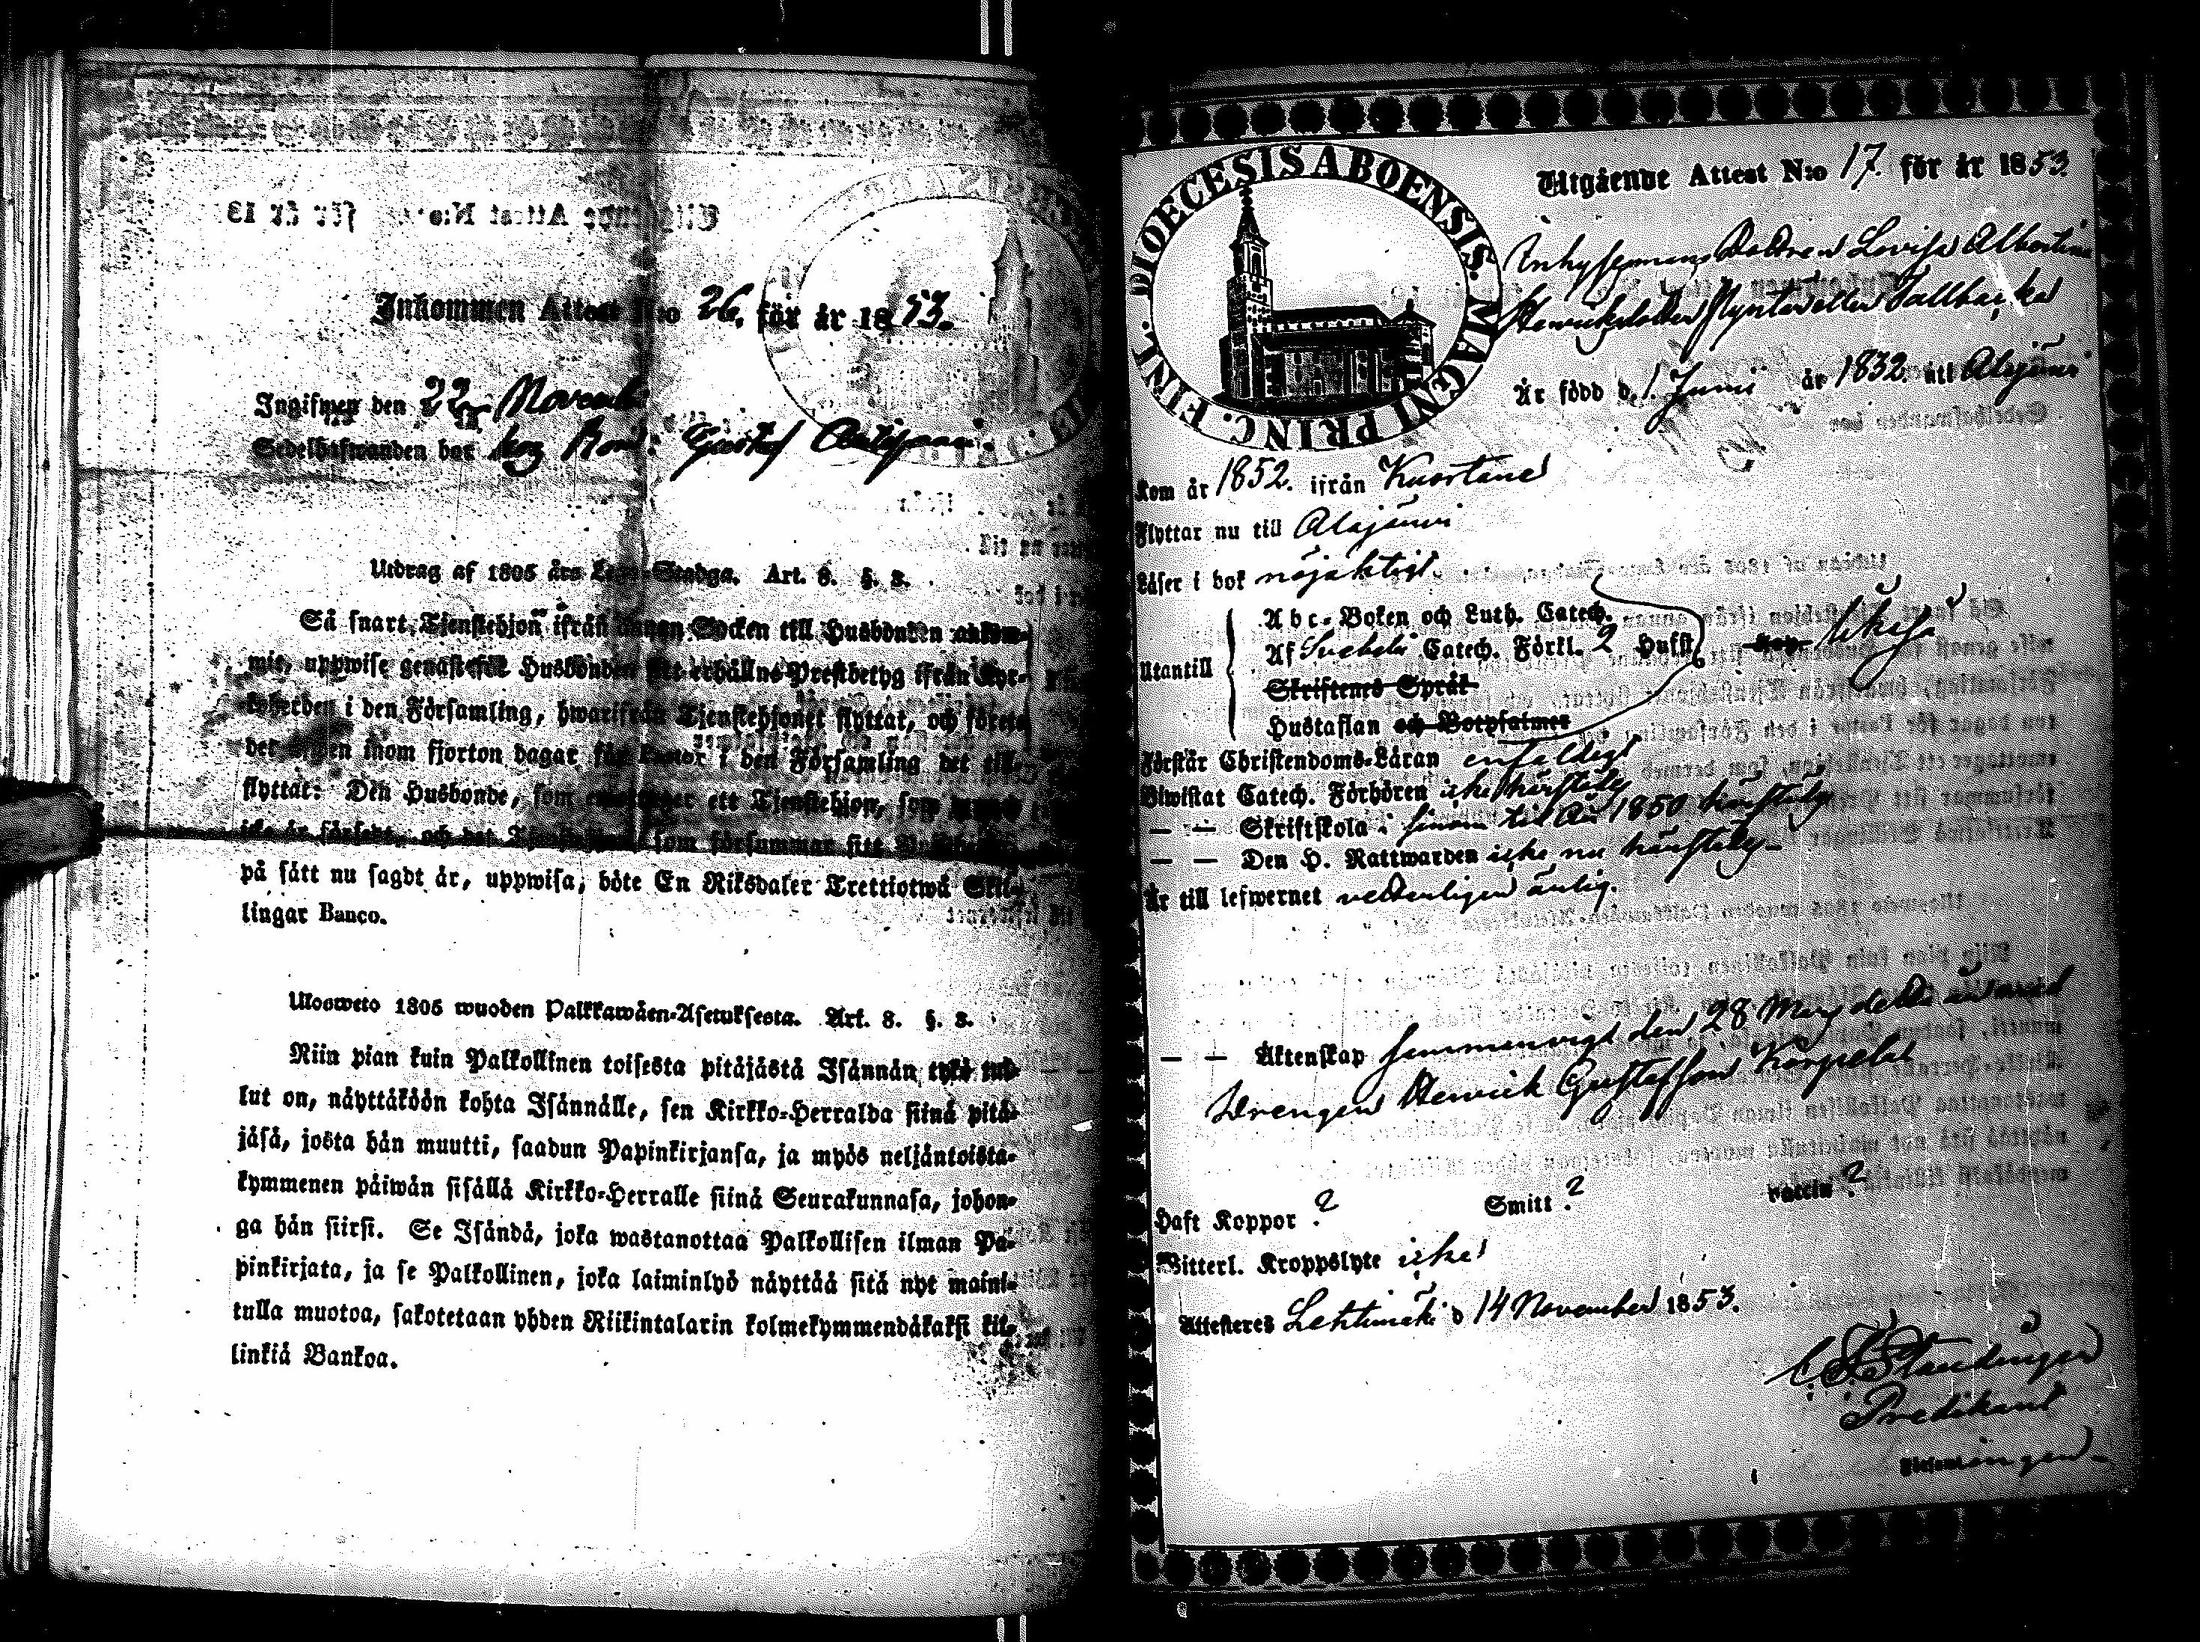 Inkommen Attest N:o 26. för år 1853.
Ingifwen den 22 Novemb
Sedelhafwanden bor hos Gustaf
Utdrag af 1805 års Lego-Stadga. Art. 8. §. 3.
Så snart Tjenstehjon ifrån annan Socken till Husbonden ankom-
mit, uppwise genast för Husbonden sitt erhållna Prestbetyg ifrån Kyr-
koherden i den Församling, hwarifrån Tjenstehjonet flyttat, och förete
det inom fjorton dagar för Pastor i den Församling det till-
flyttat: Den Husbonde, som emottager ett Tjenstehjon, som
icke är försedt, och det Tjenstehjon, som försummar sitt
på sätt nu sagdt är, uppwisa, böte En Riksdaler Trettiotwå Skil-
lingar Banco.
Ulosweto 1805 wuoden Palkkawäen-Asetuksesta. Art. 8. §. 3.
Niin pian kuin Palkollinen toisesta pitäjästä Isännän tykö tul-
lut on, näyttäköön kohta Isännälle, sen Kirkko-Herralda siinä pitä-
jäsä, josta hän muutti, saadun Papinkirjansa, ja myös neljäntoista-
kymmenen päiwän sisällä Kirkko-Herralle siinä Seurakunnasa, johon-
ga hän siirsi. Se Isändä, joka wastanottaa Palkollisen ilman Pa-
pinkirjata, ja se Palkollinen, joka laiminlyö näyttää sitä nyt maini-
tulla muotoa, sakotetaan yhden Riikintalarin kolmekymmendäkaksi kil-
linkiä Bankoa.
DIOECESIS ABOENSIS. MAGNI PRINC. FINL.
Utgående Attest N:o 17. för år 1853.
Inhysesmans Dottren Lovisa Albertina
Henricksdotter Flyktar eller Tallbacka
Är född d. 1 Junii år 1832. uti Alajärvi
Kom år 1852. ifrån Kuortane
Flyttar nu till Alajärvi
Läser i bok nöjaktigt
Utantill
Abc-Boken och Luth. Catech.
Af Svebelii Catech. Förkl. 2 Hufst.
Skriftenes Språk
Hustaflan och Botpsalmer
Förstår Christendoms-Läran enfaldigt
Biwistat Catech. Förhören icke härstädes
— — Skriftskola finom til År 1850 härstädes
— — Den H. Nattwarden icke nu härstädes
Är till lefwernet vederligen ärlig.
— — Äktenskap sammanvigd den 28 Maij detta år med
Drengen Henrick Gustafsson Korpela
Haft Koppor ? Smitt ? vaccin ?
Witterl. Kroppslyte icke
Attesteras Lehtimäki d 14 November 1853.
Predikant